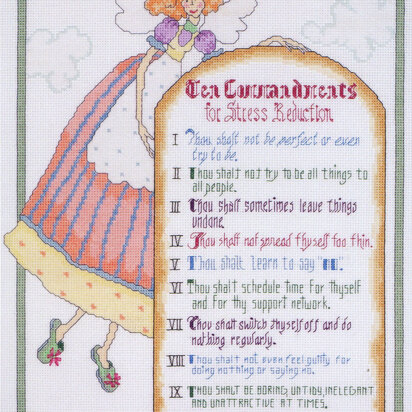 Ten Commandments
for Stress Reduction
I Thou shalt not be perfect or even
try to be.
II Thou shalt not try to be all things to
all people.
III Thou shalt sometimes leave things
undone.
IV Thou shalt not spread thyself too thin.
V Thou shalt learn to say "NO".
VI Thou shalt schedule time for thyself
and for thy support network.
VII Thou shalt switch thyself off and do
nothing regularly.
VIII Thou shalt not even feel guilty for
doing nothing or saying no.
IX THOU SHALT BE BORING, UNTIDY, INELEGANT
AND UNATTRACTIVE AT TIMES.